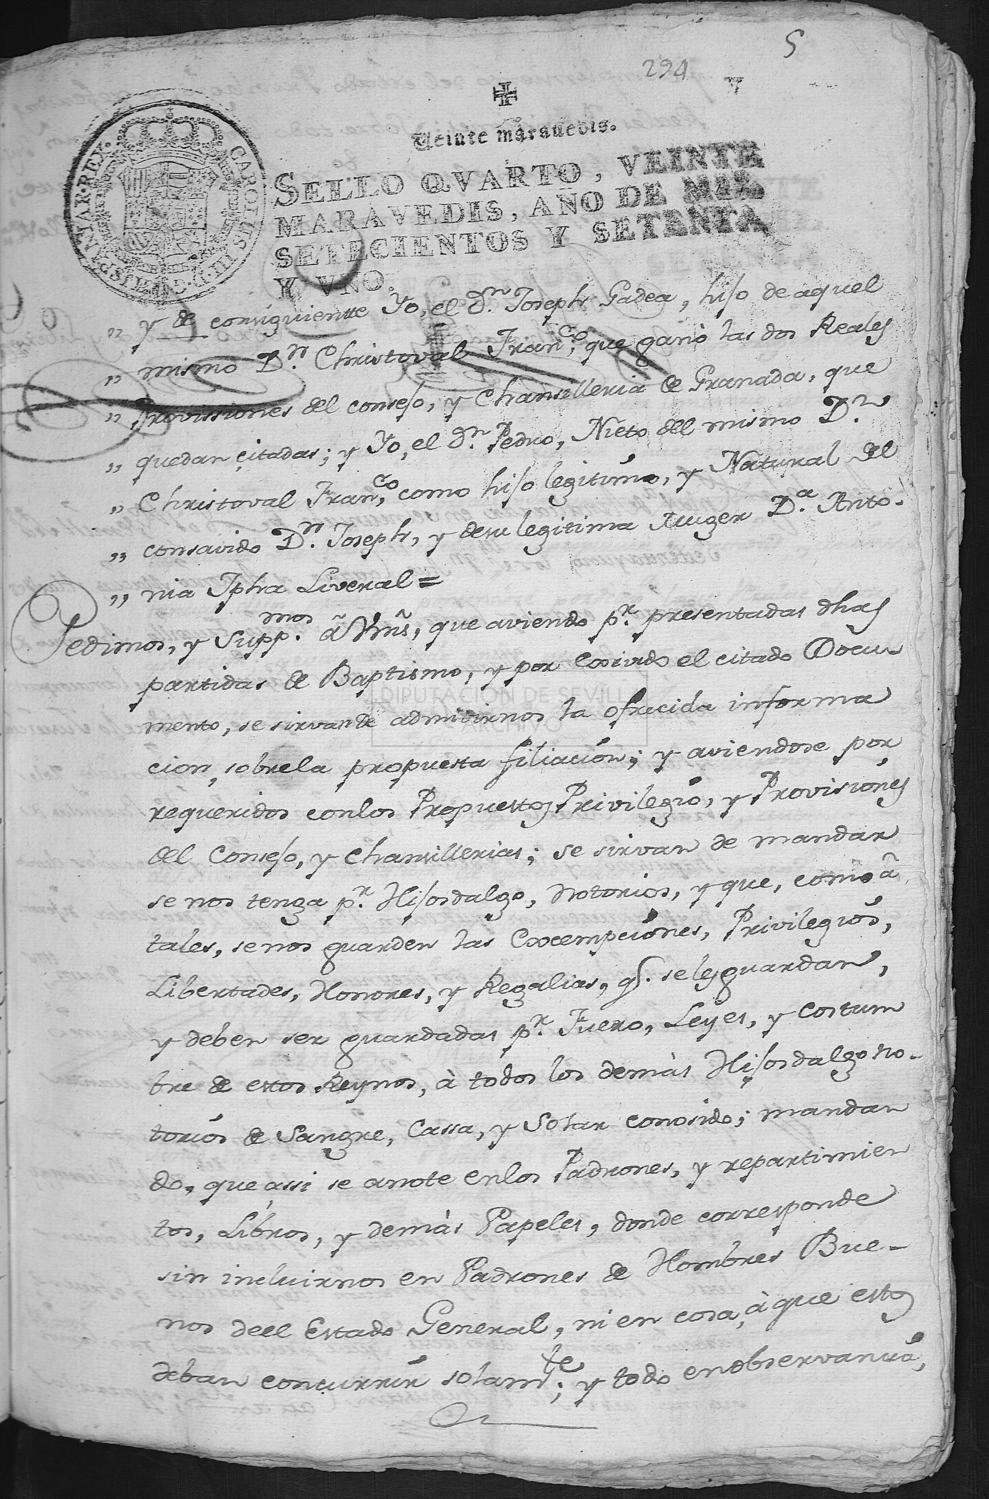 5
294
Veinte marauedis.
SELLO QVARTO, VEINTE
MARAVEDIS, AÑO DE MIL
SETECIENTOS Y SETENTA
Y VNO.
CAROLUS III D G HISPANIAR REX
" y de consiguiente Yo, el Dn. Joseph Gadea, hijo de aquel
" mismo Dn. Christoval Franco, que ganò las dos Reales
" Provissiones del consejo, y Chansilleria de Granada, que
" quedan çitadas; y Yo, el Dn. Pedro, Nieto del mismo Dn
" Christoval Franco, como hijo legitimo, y Natural del
" consavido Dn. Joseph, y desu legitima Muger Da. Anto-
" nia Jpha Liveral =
Pedimos, y Suppmos. à Vms, que aviendo pr. presentadas dhas
partidas de Baptismo, y por Cosirdo el citado Docu-
mento, se sirvan de admitirnos la ofrecida informa
cion, sobrela propuesta filiación; y aviendose por
requeridos conlos Propuestos Privilegio, y Provisiónes
del Consejo, y Chansillerias; se sirvan de mandar
se nos tenga pr. Hijosdalgo, Notorios, y que, como à
tales, senos guarden las Excempciónes, Privilegios,
Libertades, Honores, y Regalias, q. seles guardan,
y deben ser guardadas pr. Fuero, Leyes, y costum
bre de estos Reynos, à todos los demàs Hijosdalgo no-
torios de Sangre, Cassa, y Solar conosido; mandan
do, que assi se anote enlos Padrones, y repartimien
tos, Libros, y demàs Papeles, donde corresponde
sin incluirnos en Padrones de Hombres Bue-
nos deel Estado General, ni en cosa, à que estos
deban concurrir solamte; y todo enobservancia,
DIPUTACIÓN DE SEVILLA
ARCHIVO